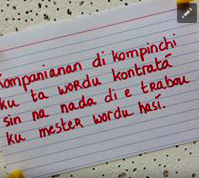 Kompanianan di kompinchi
ku ta wordu kontratá
sin na nada di e trabou
ku mester wordu hasí.